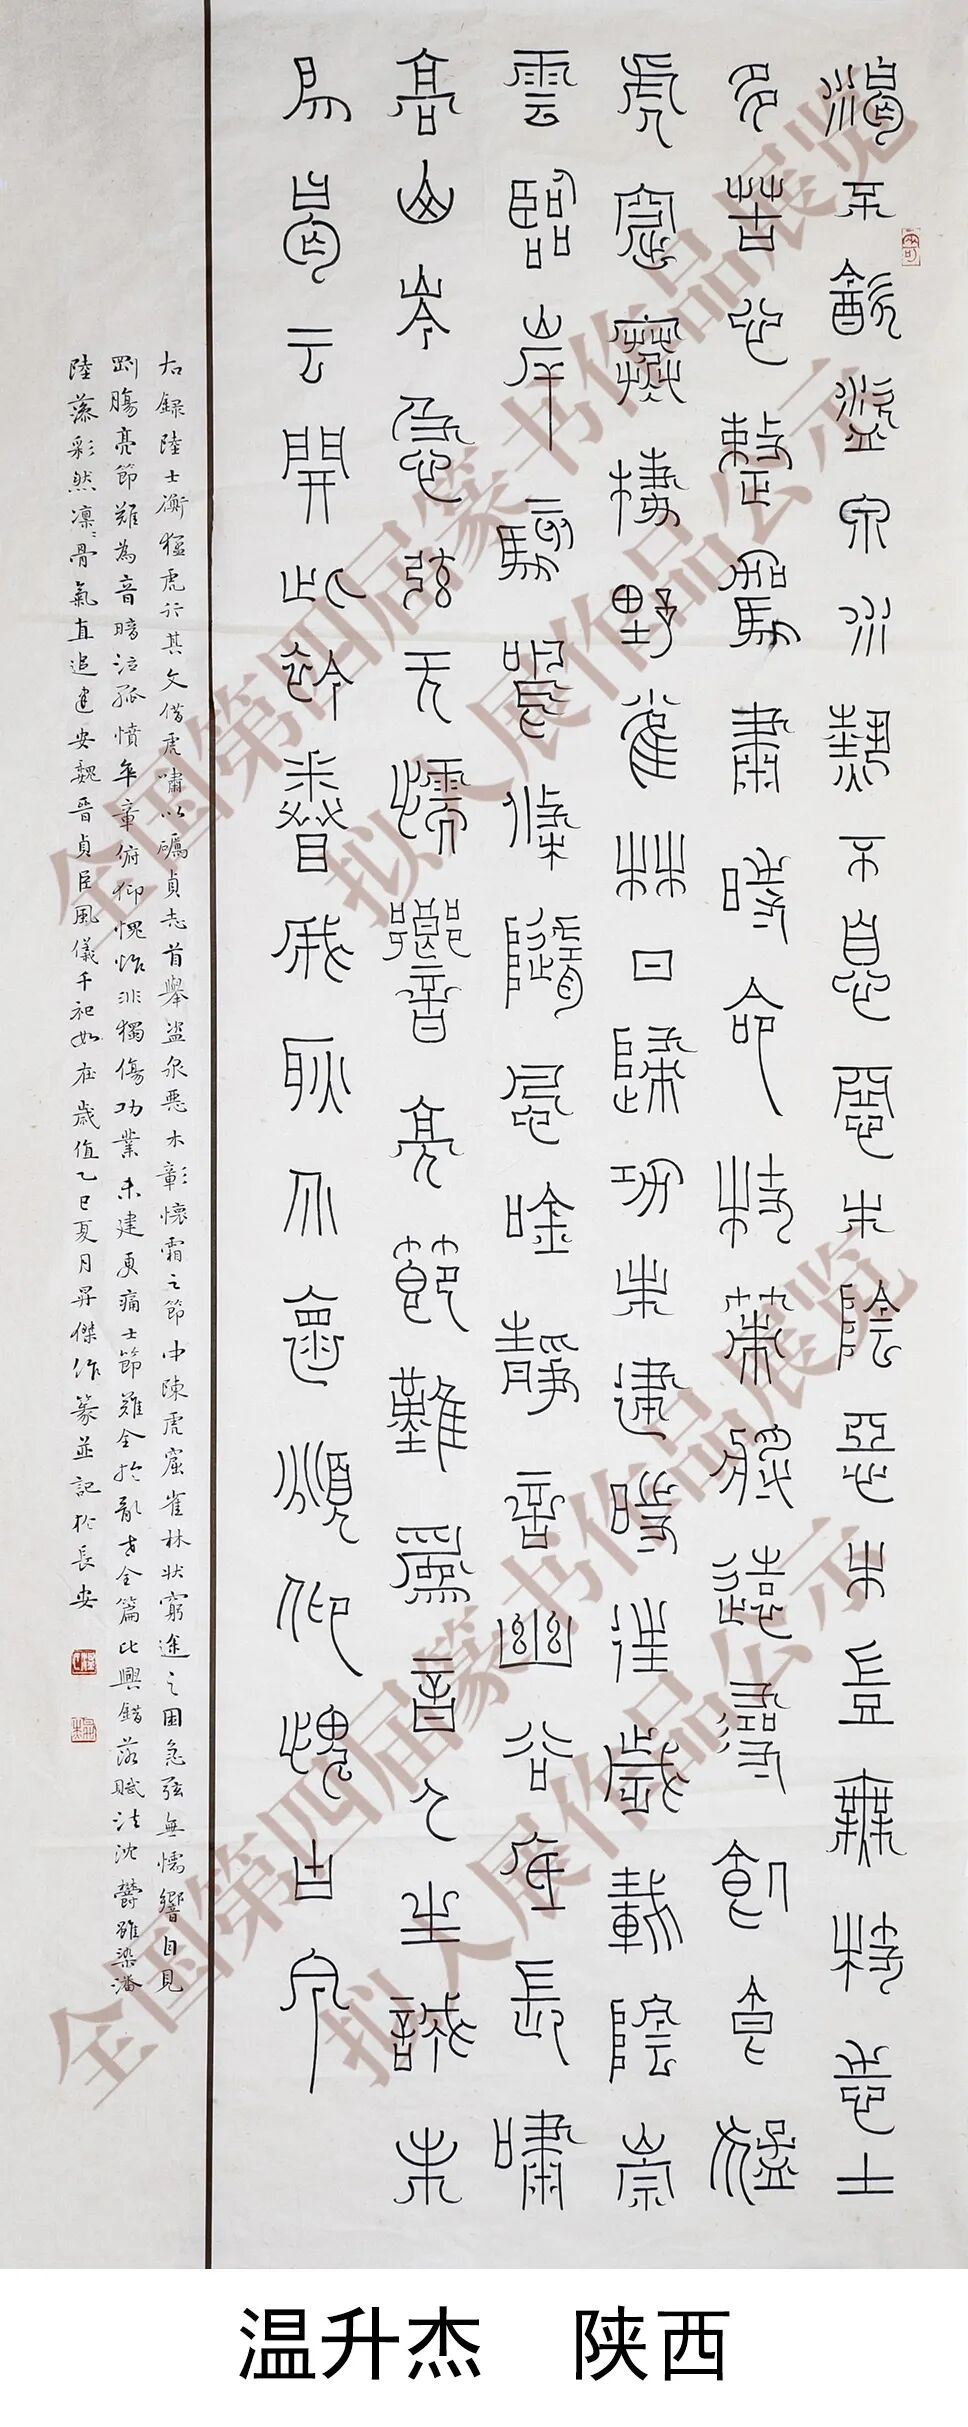 渴不飲盜泉水熱不息惡木陰惡木豈無枝志士
多苦心整駕肅時命杖策將遠尋飢食猛
虎窟寒棲野雀林日歸功未建時往歲載陰崇
雲臨岸駭鳴條隨風吟靜言幽谷底長嘯
高山岑急弦无懦響亮節難為音人生誠未
易曷云開此衿眷我耿介懷頫仰愧古今
右録陸士衡猛虎行其文借虎嘯以礪貞志首舉盗泉惡木彰懷霜之節中陳虎窟雀林狀窮途之困急弦無懦響自見
剛腸亮節難為音暗泣孤憤卒章俯仰愧怍非獨傷功業未建更痛士節難全於亂世全篇比興錯落賦法沈鬱雖染潘
陸藻彩然凜凜骨氣直追建安魏晉貞臣風儀千祀如在歲值乙巳夏月昇傑作篆並記於長安
全国第四届篆书作品展览
拟入展作品公示
全国第四届篆书作品展览
拟入展作品公示
温升杰 陕西